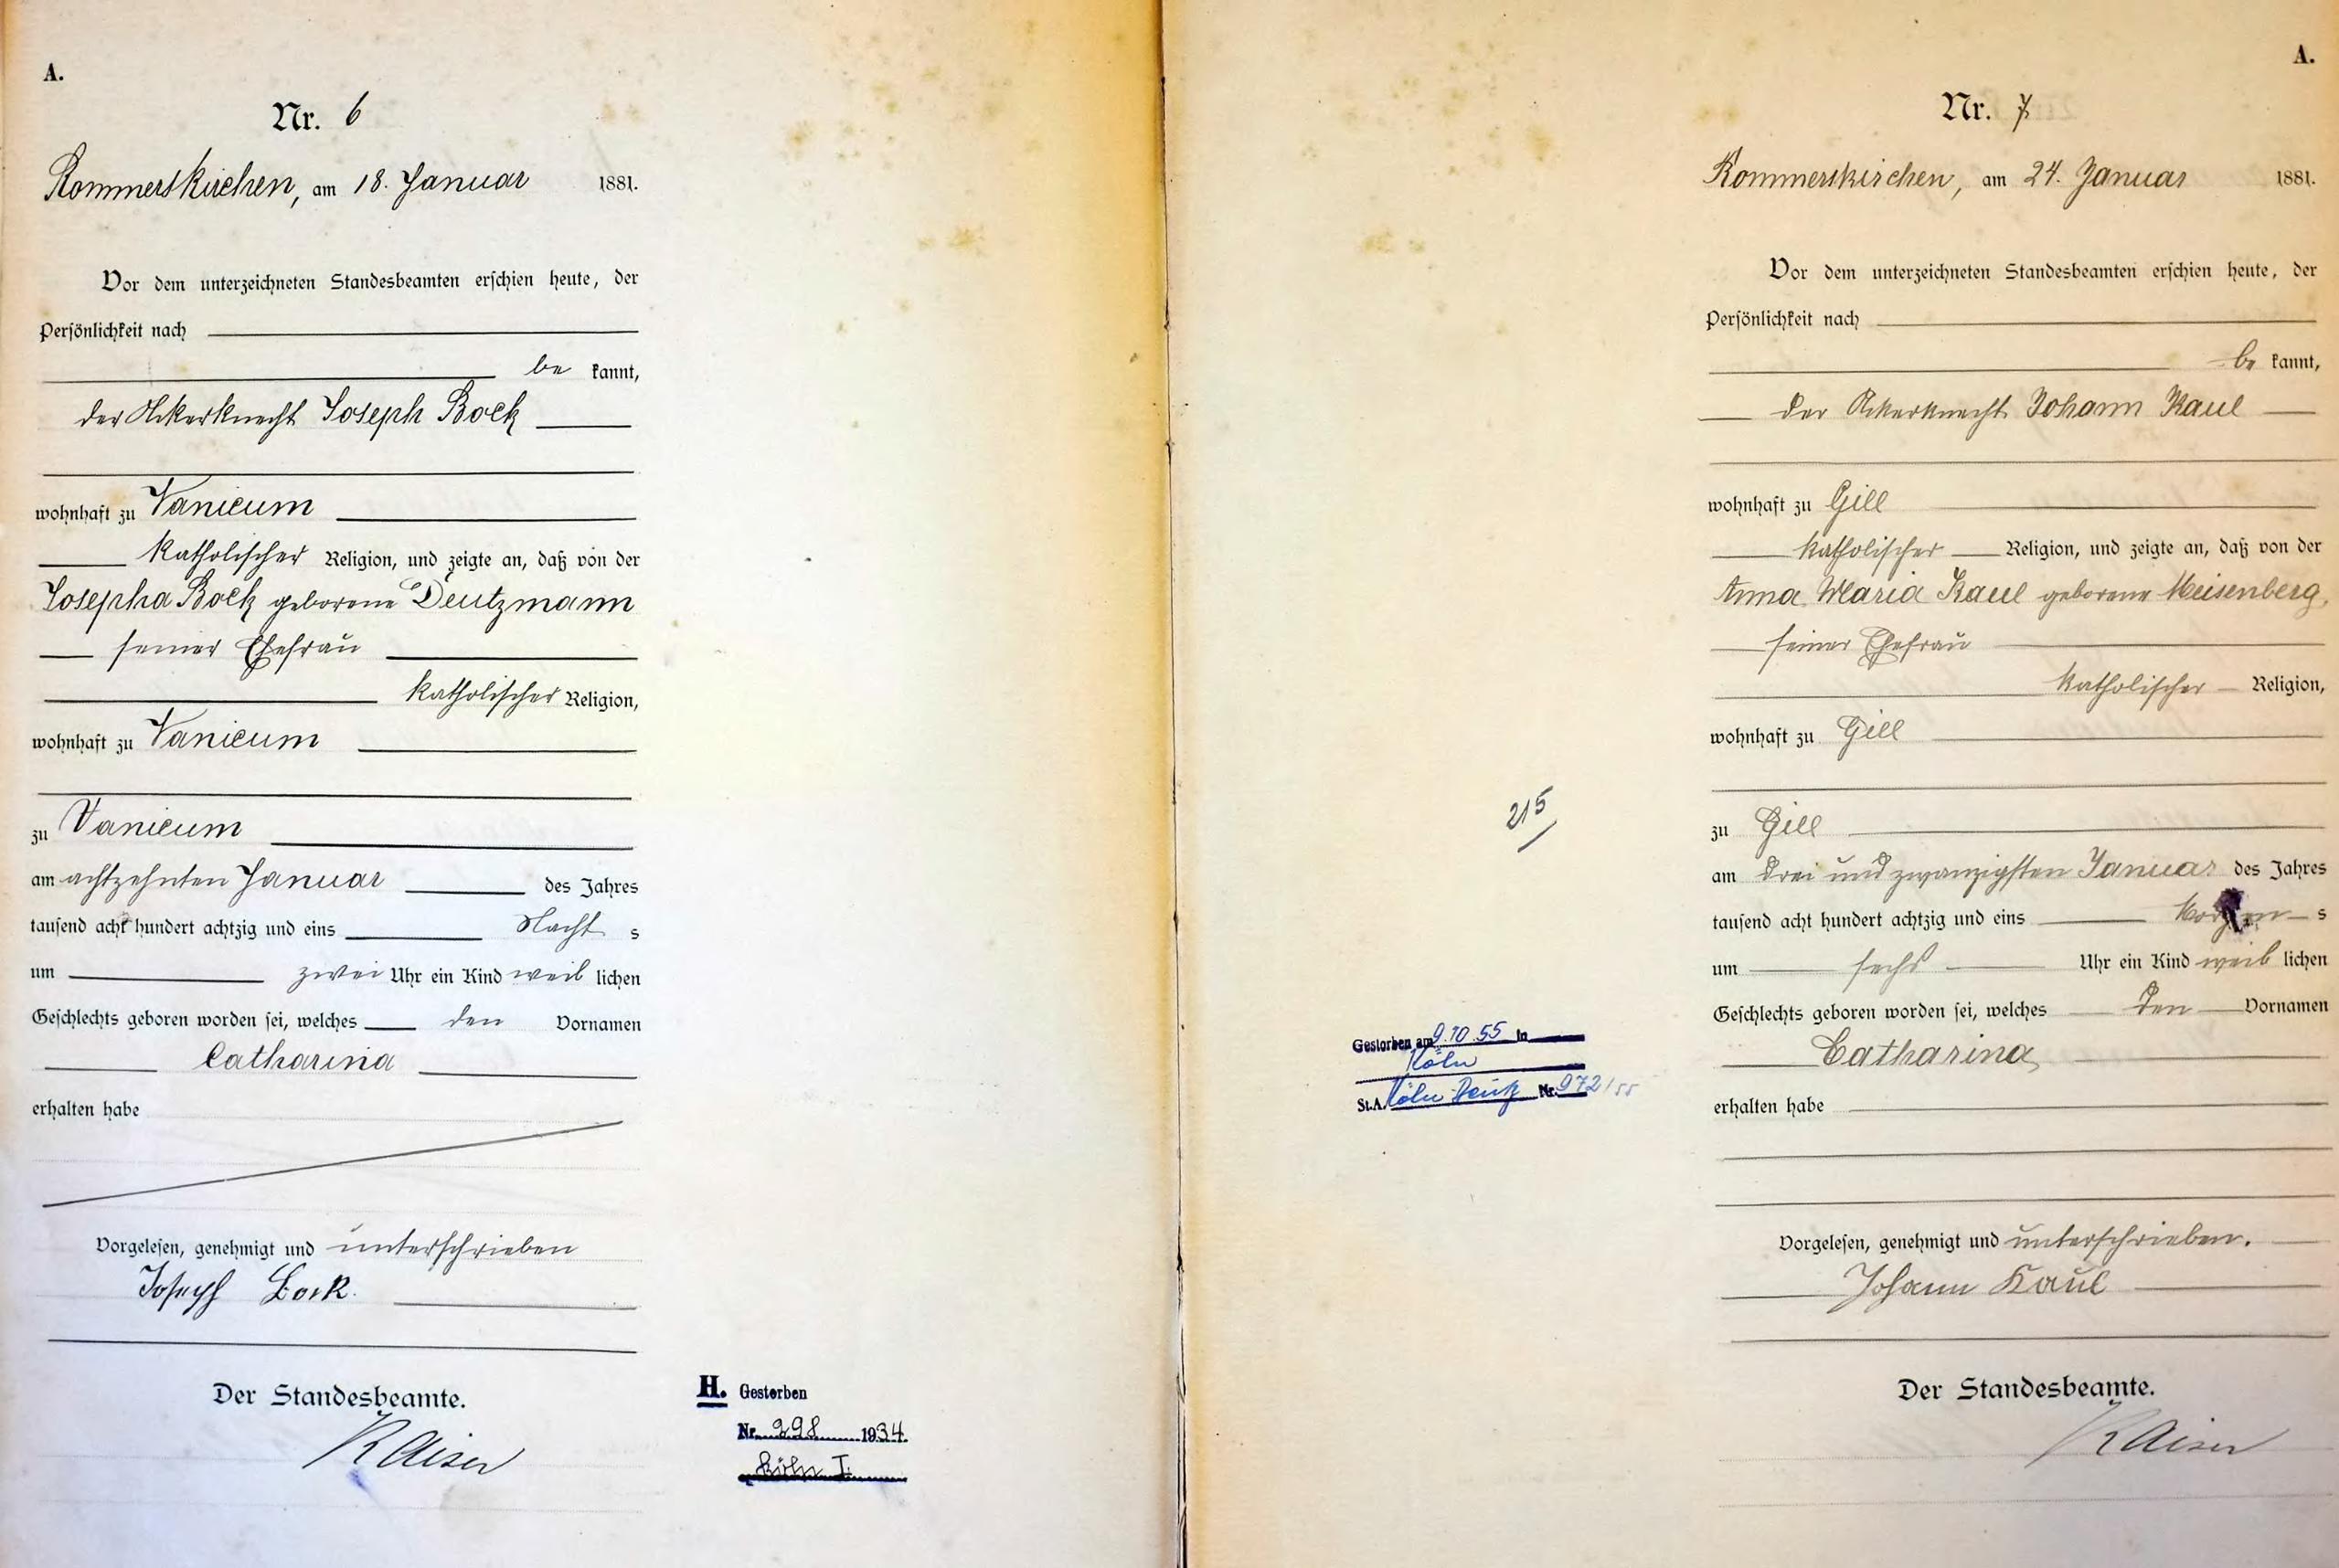 A.
Nr. 6
Rommerskirchen, am 18. Januar 1881.
Vor dem unterzeichneten Standesbeamten erschien heute, der
Persönlichkeit nach
be kannt,
der Ackerknecht Joseph Bock
wohnhaft zu Vanicum
katholischer Religion, und zeigte an, daß von der
Josepha Bock geborene Deutzmann
seiner Ehefrau
katholischer Religion,
wohnhaft zu Vanicum
zu Vanicum
am achtzehnten Januar des Jahres
tausend acht hundert achtzig und eins Nacht s
um zwei Uhr ein Kind weib lichen
Geschlechts geboren worden sei, welches den Vornamen
Catharina
erhalten habe
Vorgelesen, genehmigt und unterschrieben
Joseph Bock.
Der Standesbeamte.
Kaiser
H. Gestorben
Nr. 298 1934.
Köln I.
A.
Nr. 7
Rommerskirchen, am 24. Januar 1881.
Vor dem unterzeichneten Standesbeamten erschien heute, der
Persönlichkeit nach
be kannt,
der Ackerknecht Johann Kaul
wohnhaft zu Gill
katholischer Religion, und zeigte an, daß von der
Anna Maria Kaul geborene Meisenberg,
seiner Ehefrau
katholischer Religion,
wohnhaft zu Gill
215
zu Gill
am drei und zwanzigsten Januar des Jahres
tausend acht hundert achtzig und eins Morgen s
um sechs Uhr ein Kind weib lichen
Geschlechts geboren worden sei, welches den Vornamen
Catharina
erhalten habe
Gestorben am 9.10.55 in
Köln
St.A. Köln-Deutz Nr. 972/55
Vorgelesen, genehmigt und unterschrieben.
Johann Kaul
Der Standesbeamte.
Kaiser